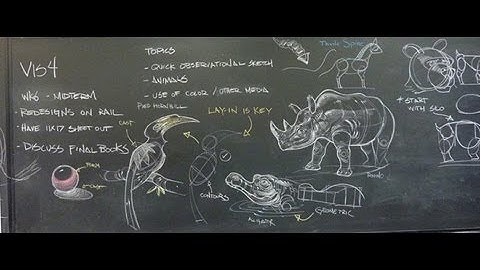 VIS4
WK6 - MIDTERM
REDESIGNS ON RAIL
HAVE 11X17 SHEET OUT
- DISCUSS FINAL BOOKS
TOPICS
- QUICK OBSERVATIONAL SKETCH
- ANIMALS
- USE OF COLOR / OTHER MEDIA
PIED HORNBILL
CAST
LAY-IN IS KEY
CONTOURS
GEOMETRIC
+ START
WITH SILO